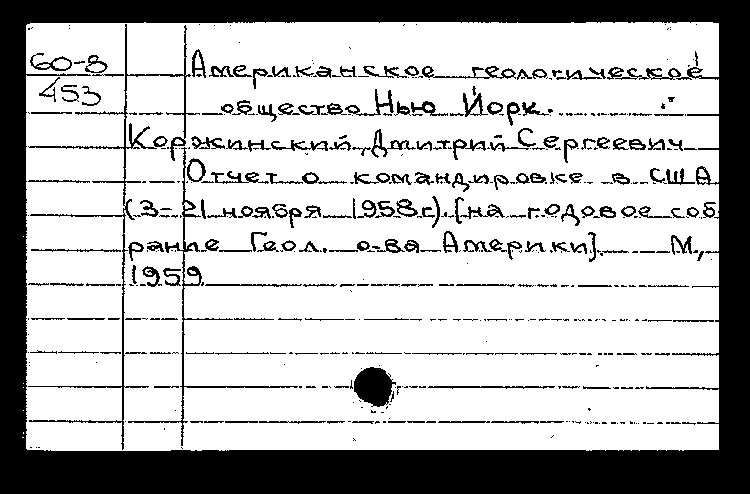 60-8
453
Американское геологическое
общество Нью Йорк.
Коржинский, Дмитрий Сергеевич
Отчет о командировке в США
(3-21 ноября 1958г). [на годовое соб
рание Геол. о-ва Америки]. М.,
1959